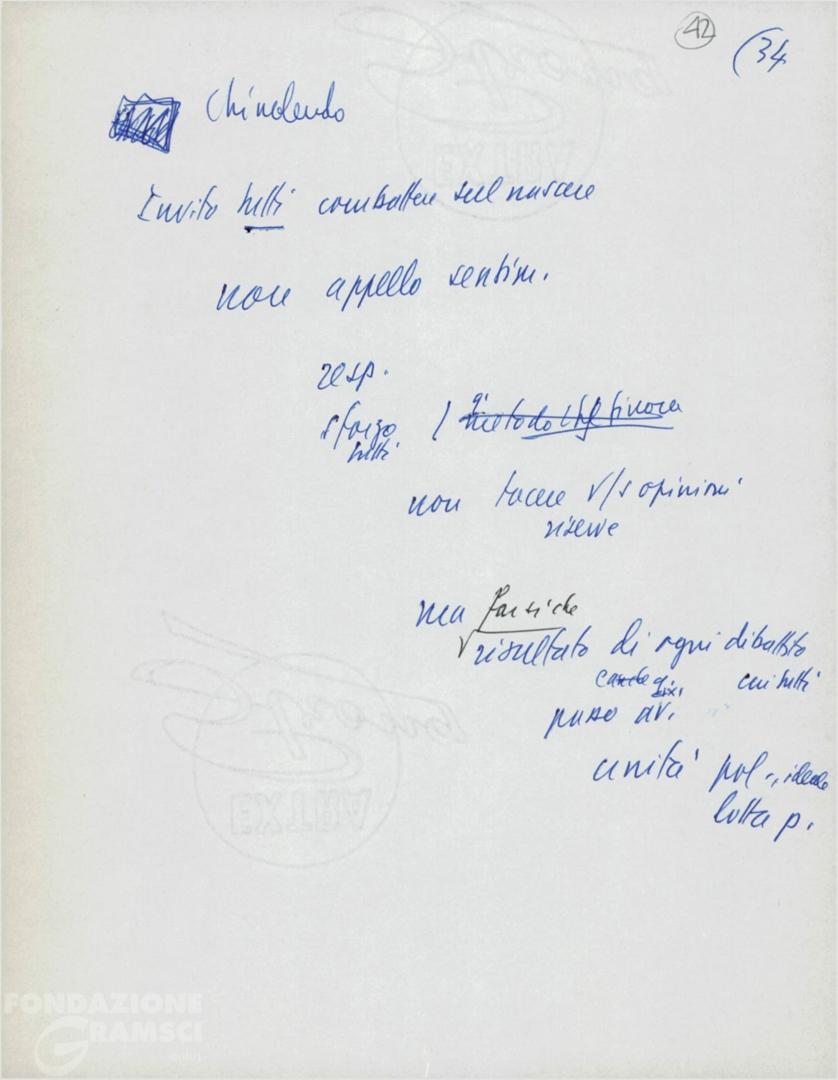 42
(34
Chiudendo
Invito tutti combattere sul nascere
non appello sentim.
resp.
sforzo / metodo finora
tutti
non tacere opinioni
riserve
ma far sì che
risultato di ogni dibattito
cui tutti
passo av.
unità pol., ideale
lotta p.
FONDAZIONE
GRAMSCI
onlus